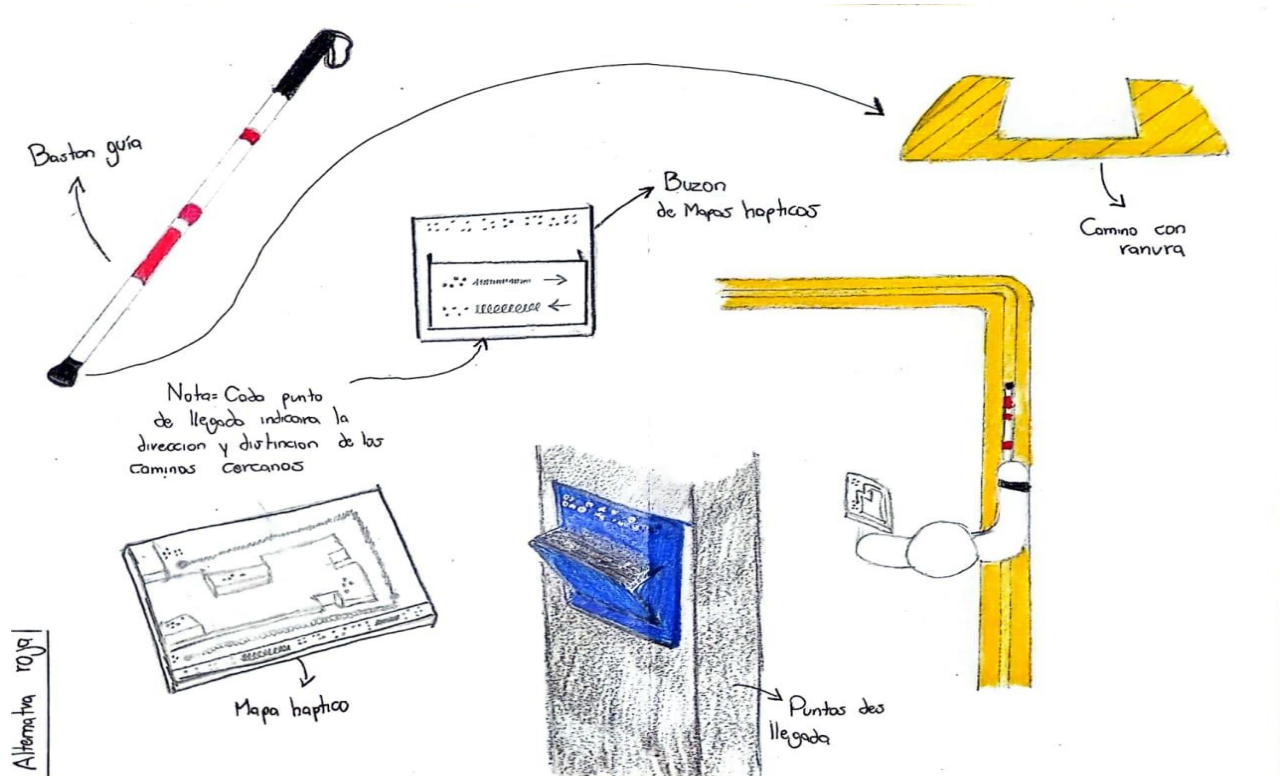 Baston guía
Buzon
de Mapas hapticos
Camino con
ranura
Nota= Cada punto
de llegada indicara la
direccion y distincion de los
caminos cercanos
Mapa haptico
Puntos des
llegada
Alternativa roja